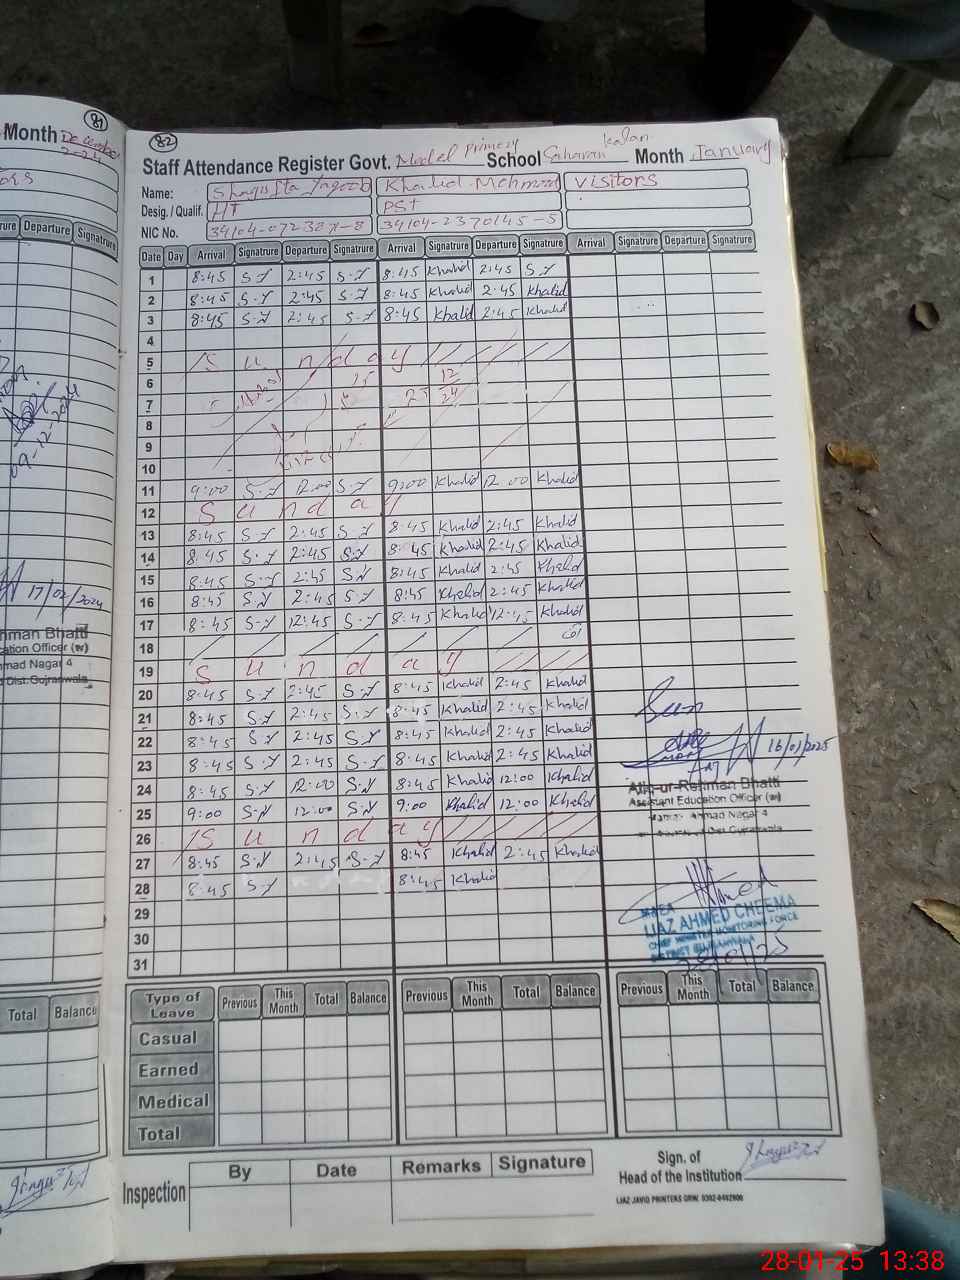 81
Month December
2024
Departure Signature
09-12-2024
17/02/2024
hman Bhatti
cation Officer
hmad Nagar 4
Dist.Gujranwala
Total Balance
82
Staff Attendance Register Govt. Model Primary School Saharan Kalan Month January
Name: Shagufta Yaqoob Khalid Mehmood Visitors
Desig. / Qualif. HT PST
NIC No. 34104-2370145-5
Date Day Arrival Signature Departure Signature Arrival Signature Departure Signature Arrival Signature Departure Signature
1 8:45 S.Y 2:45 S.Y 8:45 Khalid 2:45 S.Y
2 8:45 S.Y 2:45 S.Y 8:45 Khalid 2:45 Khalid
3 8:45 S.Y 2:45 S.Y 8:45 Khalid 2:45 Khalid
4
5 Sunday
6 12
7 24
8
9
10
11 9:00 S.Y 12:00 S.Y 9:00 Khalid 12:00 Khalid
12 Sunday
13 8:45 S.Y 2:45 S.Y 8:45 Khalid 2:45 Khalid
14 8:45 S.Y 2:45 S.Y 8:45 Khalid 2:45 Khalid
15 8:45 S.Y 2:45 S.Y 8:45 Khalid 2:45 Khalid
16 8:45 S.Y 2:45 S.Y 8:45 Khalid 2:45 Khalid
17 8:45 S.Y 12:45 S.Y 8:45 Khalid 12:45 Khalid
18
19 Sunday
20 8:45 S.Y 2:45 S.Y 8:45 Khalid 2:45 Khalid
21 8:45 S.Y 2:45 S.Y 8:45 Khalid 2:45 Khalid
22 8:45 S.Y 2:45 S.Y 8:45 Khalid 2:45 Khalid
23 8:45 S.Y 2:45 S.Y 8:45 Khalid 2:45 Khalid
24 8:45 S.Y 12:00 S.Y 8:45 Khalid 12:00 Khalid
25 9:00 S.Y 12:00 S.Y 9:00 Khalid 12:00 Khalid
26 Sunday
27 8:45 S.Y 2:45 S.Y 8:45 Khalid 2:45 Khalid
28 8:45 S.Y 8:45 Khalid
29
30
31
16/01/2025
Atiq-ur-Rehman Bhatti
Assistant Education Officer
Markaz Ahmad Nagar 4
Dist Gujranwala
MEA
IJAZ AHMED CHEEMA
CHIEF MINISTER MONITORING FORCE
DISTRICT GUJRANWALA
28/01/25
Type of Leave Previous This Month Total Balance Previous This Month Total Balance Previous This Month Total Balance
Casual
Earned
Medical
Total
Inspection By Date Remarks Signature
Sign. of
Head of the Institution
IJAZ JAVID PRINTERS GRW.
28-01-25 13:38